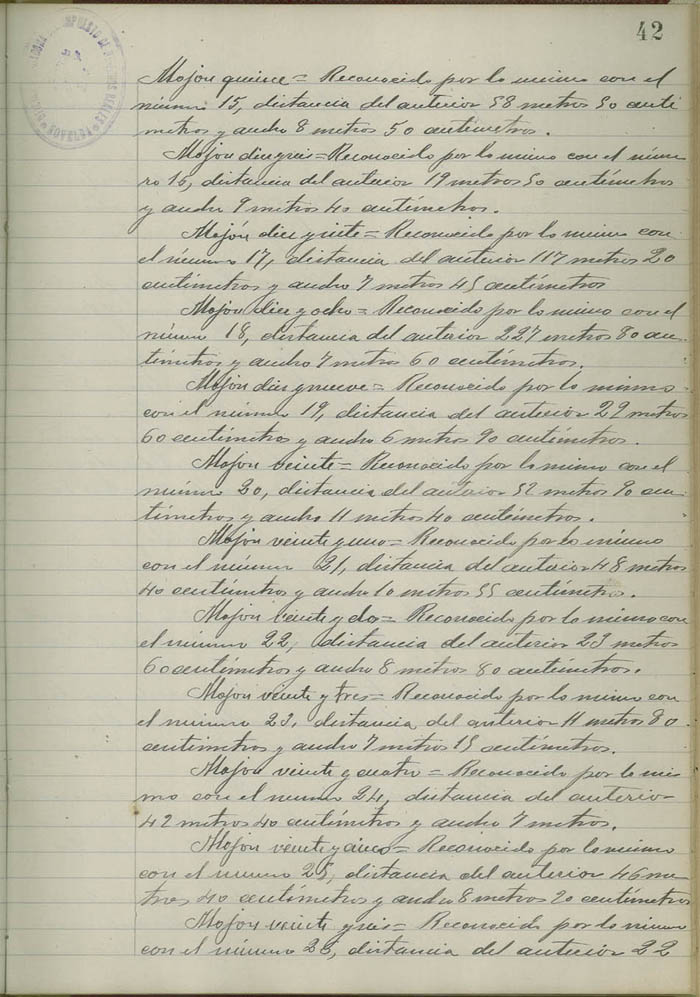 42
Mojon quince = Reconocido por lo mismo con el
número 15, distancia del anterior 58 metros 50 centí
metros y ancho 8 metros 50 centímetros.
Mojon diez y seis = Reconocido por lo mismo con el núme
ro 16, distancia del anterior 19 metros 50 centímetros
y ancho 9 metros 40 centímetros.
Mojón diez y siete = Reconocido por lo mismo con
el número 17, distancia del anterior 117 metros 20
centímetros y ancho 7 metros 45 centímetros
Mojon diez y ocho = Reconocido por lo mismo con el
número 18, distancia del anterior 227 metros 80 cen-
tímetros y ancho 7 metros 60 centímetros.
Mojón diez y nueve = Reconocido por lo mismo
con el número 19, distancia del anterior 29 metros
60 centímetros y ancho 6 metros 90 centímetros.
Mojon veinte = Reconocido por lo mismo con el
número 20, distancia del anterior 52 metros 90 cen-
tímetros y ancho 11 metros 40 centímetros.
Mojón veinte y uno = Reconocido por lo mismo
con el número 21, distancia del anterior 48 metros
40 centímetros y ancho 10 metros 55 centímetros.
Mojon veinte y dos = Reconocido por lo mismo con
el número 22, distancia del anterior 23 metros
60 centímetros y ancho 8 metros 80 centímetros.
Mojon veinte y tres = Reconocido por lo mismo con
el número 23, distancia del anterior 11 metros 80
centímetros y ancho 7 metros 15 centímetros.
Mojon veinte y cuatro = Reconocido por lo mis-
mo con el número 24, distancia del anterior
42 metros 40 centímetros y ancho 7 metros.
Mojon veinte y cinco = Reconocido por lo mismo
con el número 25, distancia del anterior 46 me-
tros 40 centímetros y ancho 8 metros 20 centímetros
Mojón veinte y seis = Reconocido por lo mismo
con el número 26, distancia del anterior 22